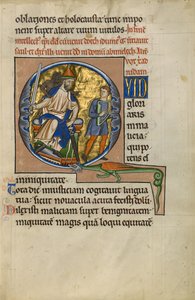 oblationes & holocausta: tunc impo
nent super altare tuum uitulos. In fine
intellectus dauid cum uenit doech
et uenit dauid in domum abimelech
QVID
glori
aris
in ma
licia
qui po
tens es
in iniquitate
Tota die iniusticiam cogitauit lingua
tua: sicut nouacula acuta fecisti dolū
Dilexisti maliciam super benignitatem
iniquitatem magis quam loqui equitatē